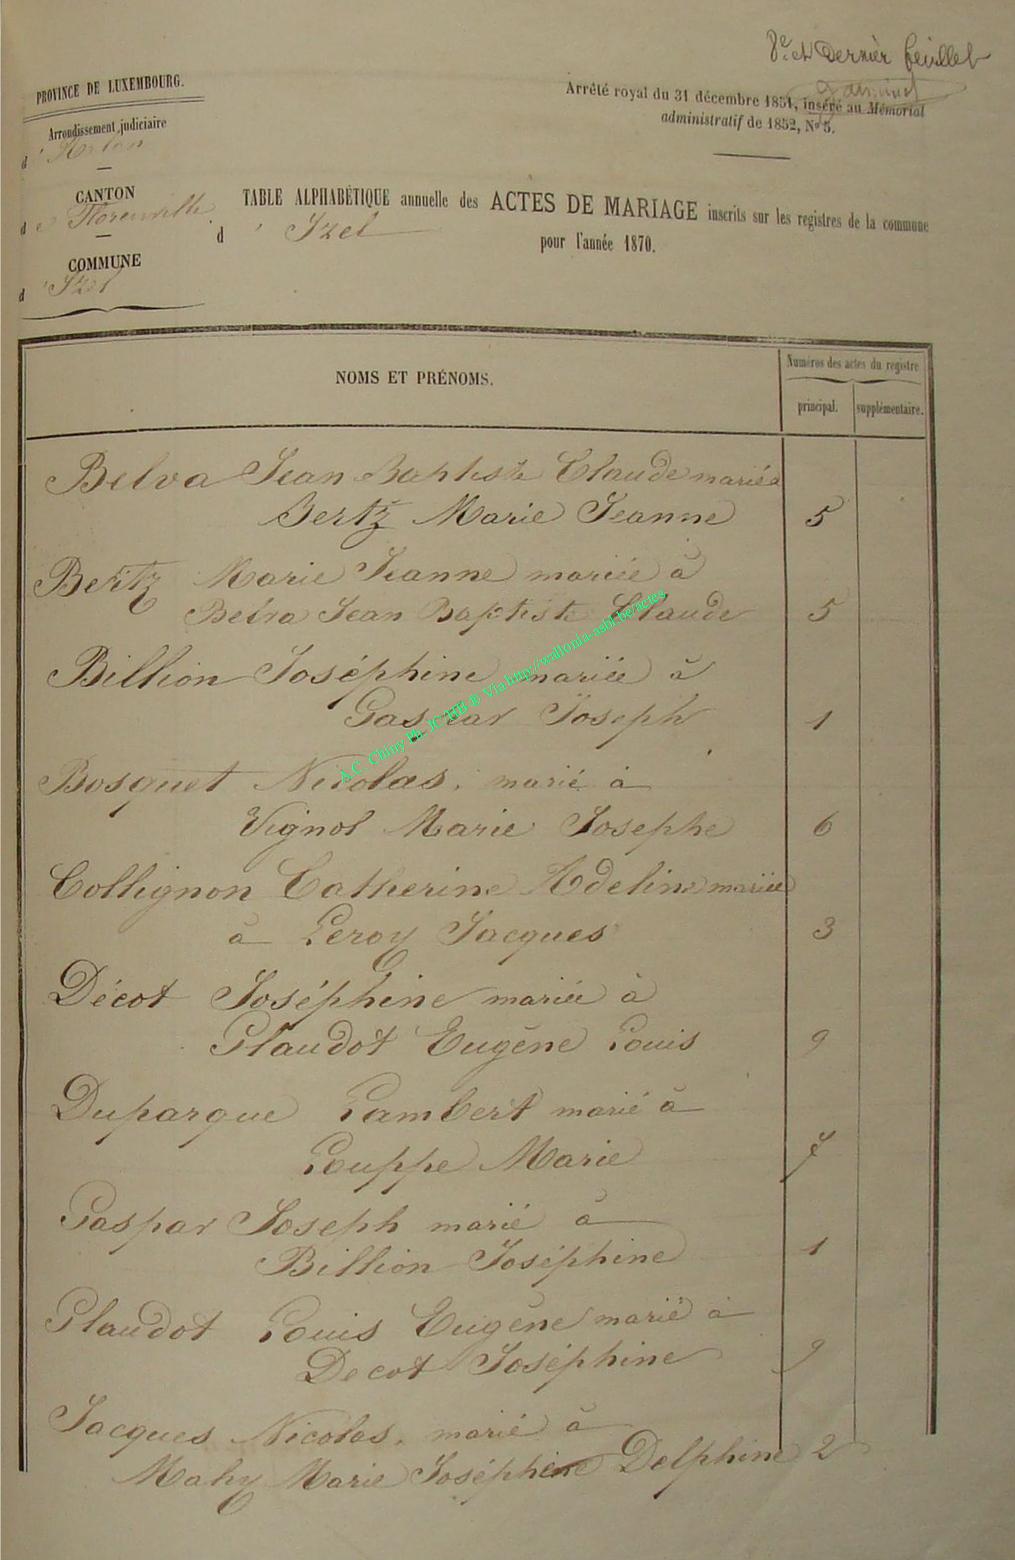 8e. et Dernier feuillet
PROVINCE DE LUXEMBOURG.
Arrêté royal du 31 décembre 1851, inséré au Mémorial
administratif de 1852, No 5.
Arrondissement judiciaire
d'Arlon
CANTON
de Florenville
TABLE ALPHABÉTIQUE annuelle des ACTES DE MARIAGE inscrits sur les registres de la commune
d'Izel
pour l'année 1870.
COMMUNE
d'Izel
NOMS ET PRÉNOMS.
Numéros des actes du registre
principal.
supplémentaire.
Belva Jean Baptiste Claude marié à
Bertz Marie Jeanne 5
Bertz Marie Jeanne mariée à
Belva Jean Baptiste Claude 5
Billion Joséphine mariée à
Gaspar Joseph 1
Bosquet Nicolas, marié à
Vignol Marie Josephe 6
Collignon Catherine Adeline mariée
à Leroy Jacques 3
Décot Joséphine mariée à
Glaudot Eugène Louis 9
Duparque Lambert marié à
Louppe Marie 7
Gaspar Joseph marié à
Billion Joséphine 1
Glaudot Louis Eugène marié à
Decot Joséphine 9
Jacques Nicolas, marié à
Mahy Marie Joséphine Delphine 2
A.C. Chiny Ph. JC HB © Via http://wallonia-asbl.be/actes